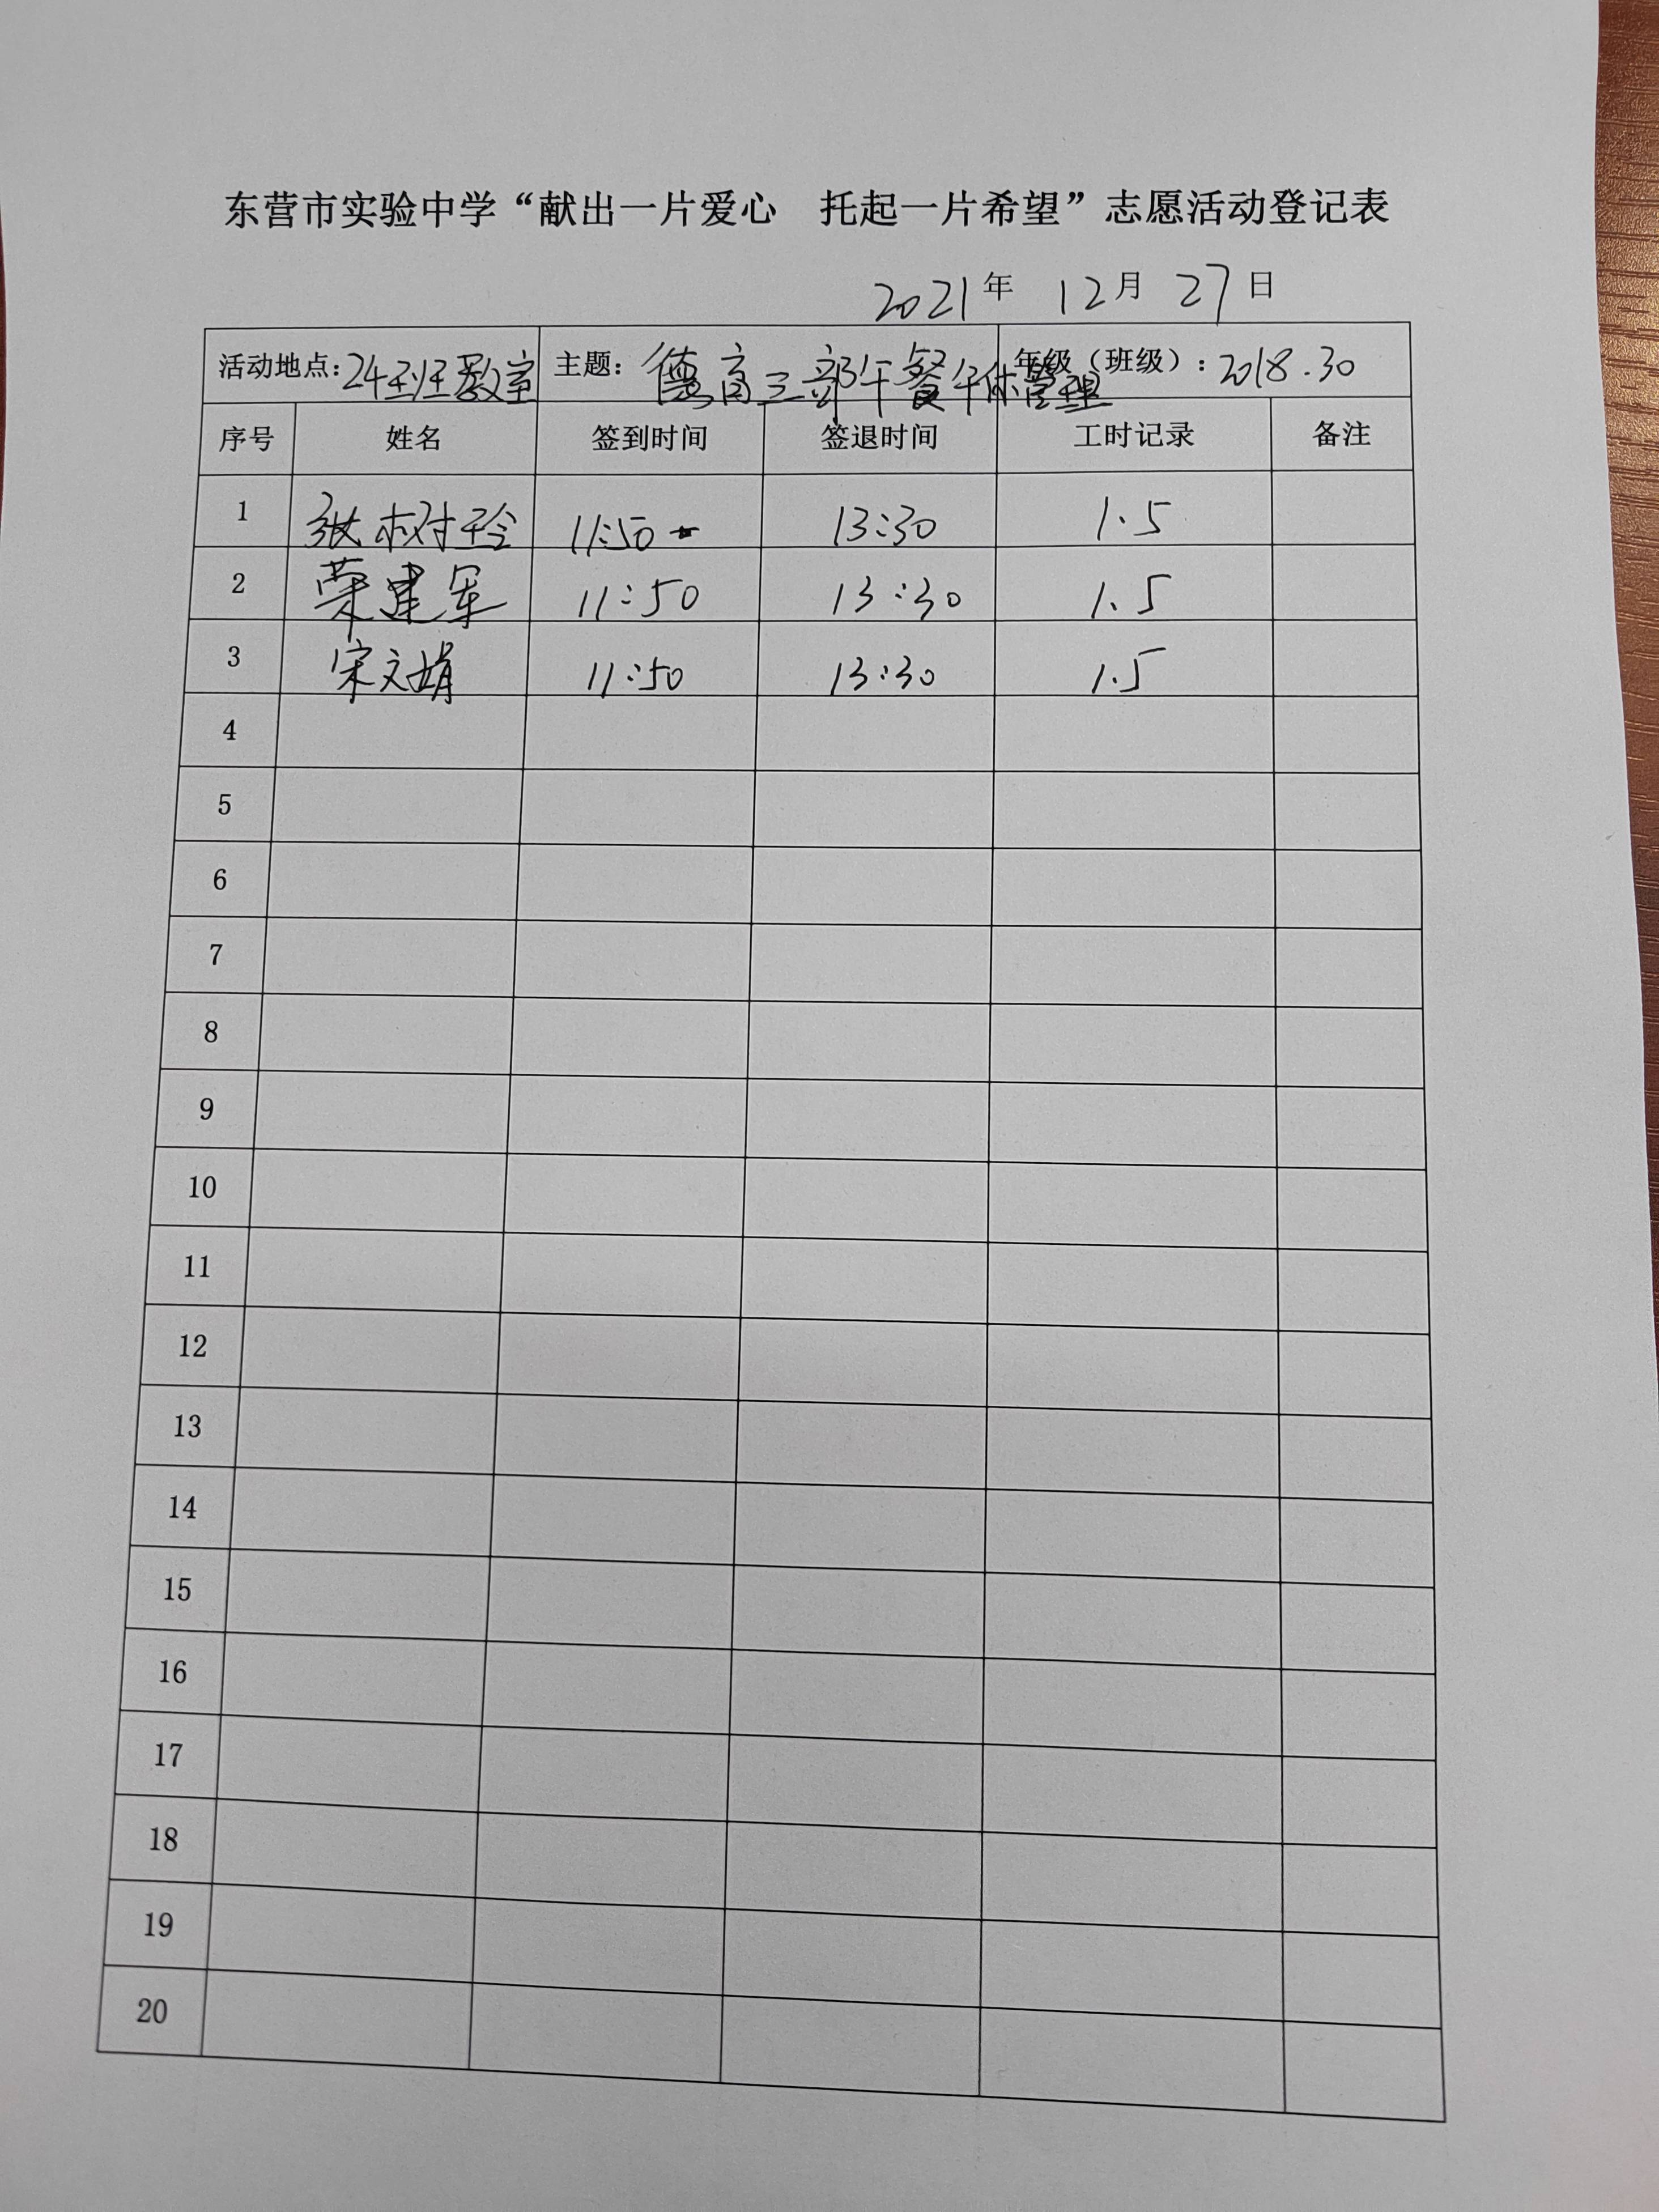 东营市实验中学“献出一片爱心 托起一片希望”志愿活动登记表
2021年 12月 27日
活动地点:24班教室 主题:德高三部午餐午休管理 年级（班级）:2018.30
序号 姓名 签到时间 签退时间 工时记录 备注
1 张树玲 11:50 13:30 1.5
2 荣建军 11:50 13:30 1.5
3 宋文娟 11:50 13:30 1.5
4
5
6
7
8
9
10
11
12
13
14
15
16
17
18
19
20